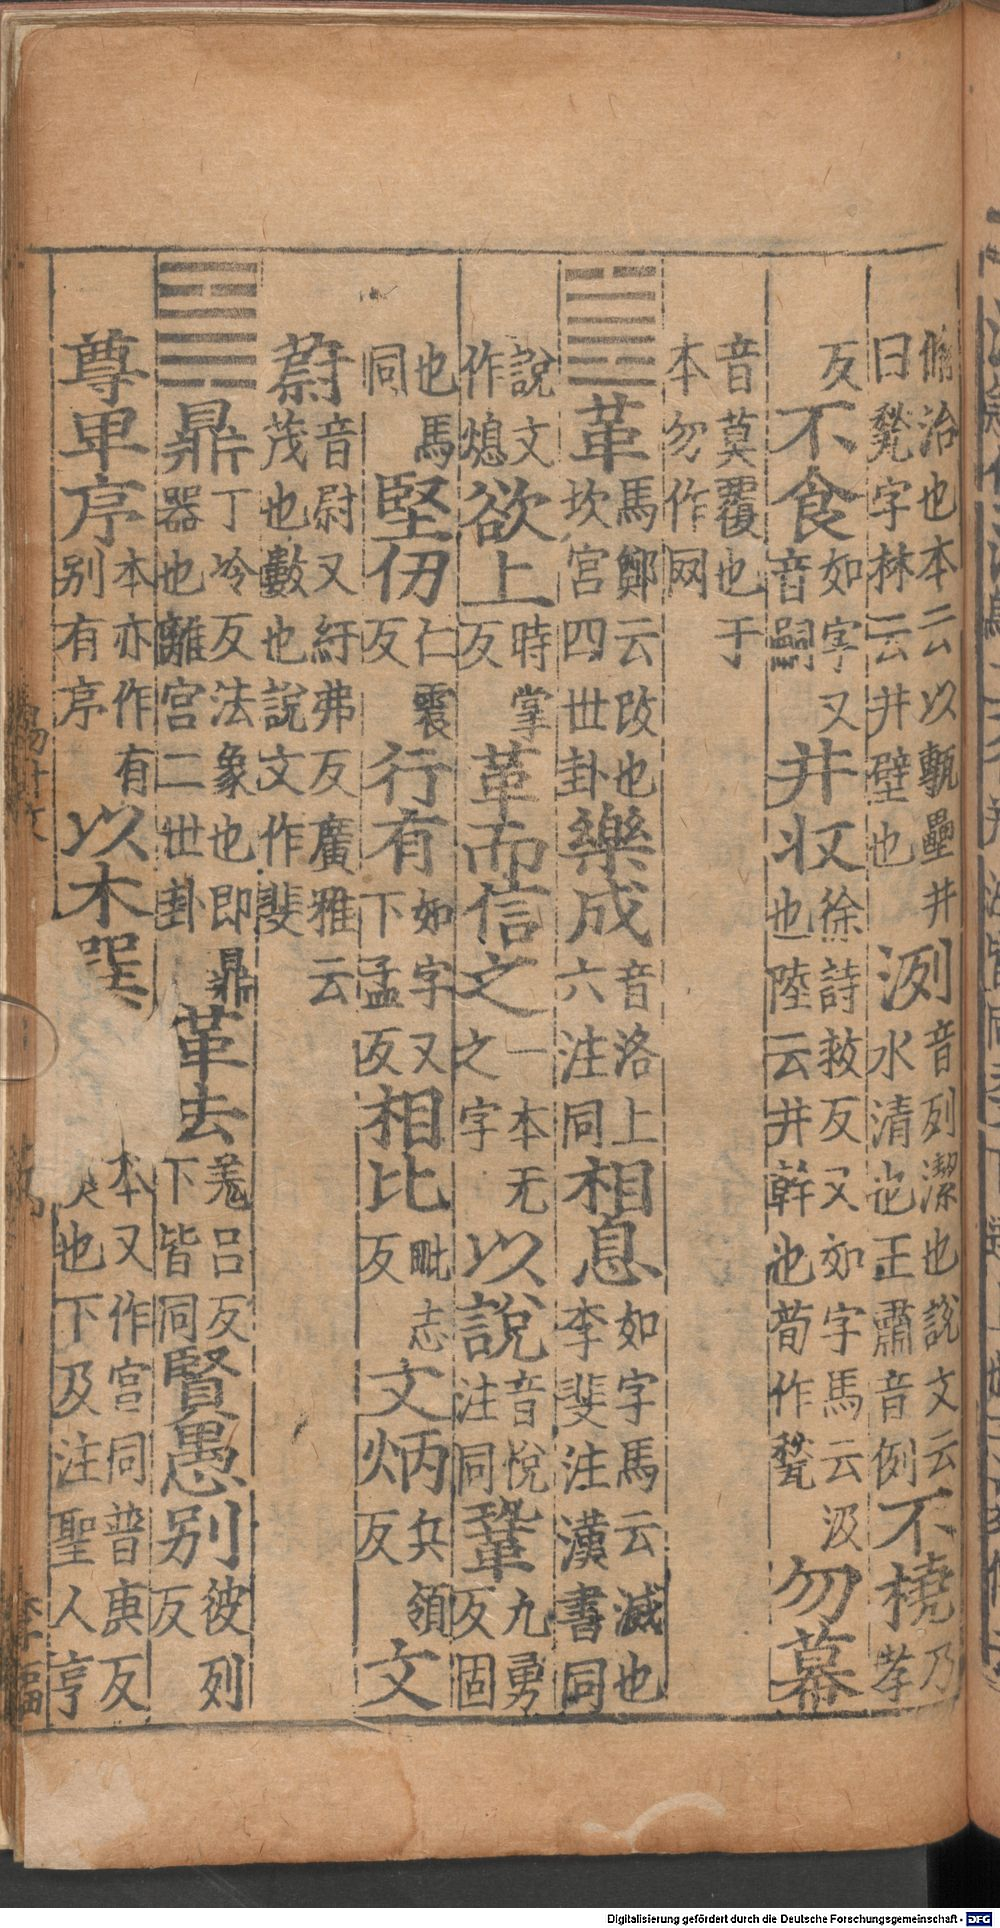 脩治也本云以甎壘井曰甃字林云井壁也洌音列潔也說文云水清也王肅音例不橈乃孝
反不食如字又音嗣井収徐詩救反又如字馬云汲也陸云井幹也荀作甃勿幕
音莫覆也于本勿作网
䷰革馬鄭云改也坎宮四世卦樂成音洛上六注同相息如字馬云滅也李斐注漢書同
說文作熄欲上時掌反革而信之一本无之字以說音悅注同鞏九勇反固
也馬同堅仞仁震反行有如字又下孟反相比毗志反文炳兵領反文
蔚音尉又紆弗反廣雅云茂也數也說文作斐
䷱鼎丁冷反法象也即鼎器也離宮二世卦革去羌呂反下皆同賢愚別彼列反
尊卑序本亦作有別有序以木巽本又作亯同普庚反也下及注聖人亨
Digitalisierung gefördert durch die Deutsche Forschungsgemeinschaft - DFG